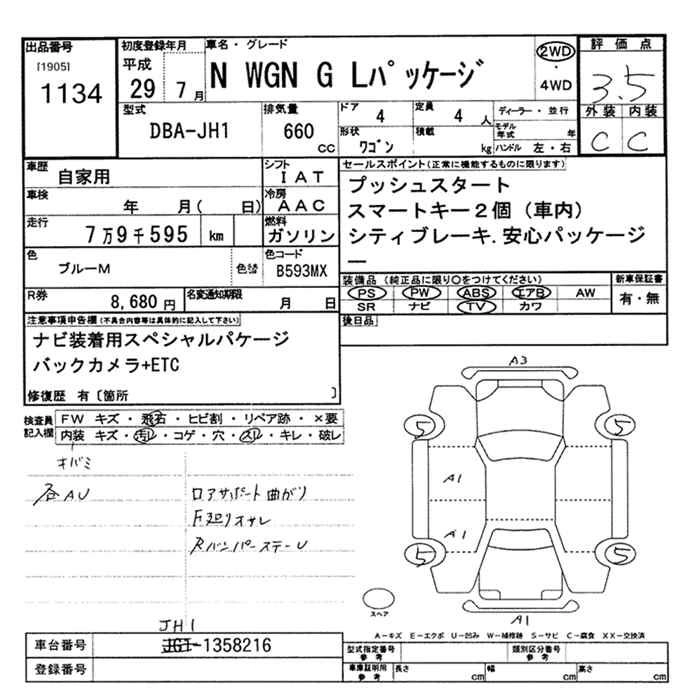 出品番号
[1905]
1134
初度登録年月
平成
29 7月
車名・グレード
N WGN G Lパッケージ
2WD
・
4WD
評価点
3.5
外装 内装
C C
型式
DBA-JH1
排気量
660
cc
ドア 4
定員 4 人
形状 ワゴン
積載 kg
ディーラー・並行
モデル年式 年
ハンドル 左・右
車歴
自家用
シフト
IAT
車検
年 月( 日)
冷房
AAC
走行
7万9千595 km
燃料
ガソリン
色
ブルーM
色替
色コード
B593MX
R券
8,680円
名変通知期限
月 日
セールスポイント(正常に機能するものに限ります)
プッシュスタート
スマートキー2個(車内)
シティブレーキ.安心パッケージ
ー
装備品(純正品に限り○をつけてください)
PS PW ABS エアB AW
SR ナビ TV カワ
新車保証書
有・無
後日品
注意事項申告欄(不具合内容等は具体的に記入して下さい)
ナビ装着用スペシャルパケージ
バックカメラ+ETC
修復歴 有〔箇所 〕
検査員
記入欄
FW キズ・飛石・ヒビ割・リペア跡・×要
内装 キズ・汚レ・コゲ・穴・スレ・キレ・破レ
各AU
ロアサポート曲がり
F廻りオサレ
RバンパーステーU
A3
5 5
A1
A1
5 5
スペア
A1
A-キズ E-エクボ U-凹み W-補修跡 S-サビ C-腐食 XX-交換済
JH1
車台番号
-1358216
登録番号
型式指定番号
参考
類別区分番号
参考
車庫証明用
参考
長さ cm
幅 cm
高さ cm